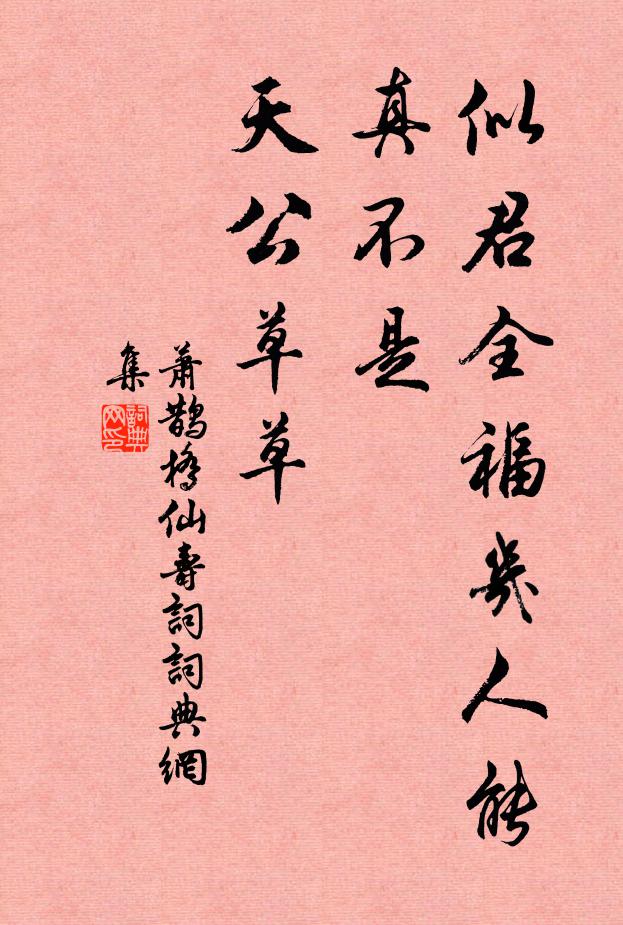 似君全福幾人能
真不是
天公草草
蕭鵲橋仙壽詞詞典網
集
詞典
网印